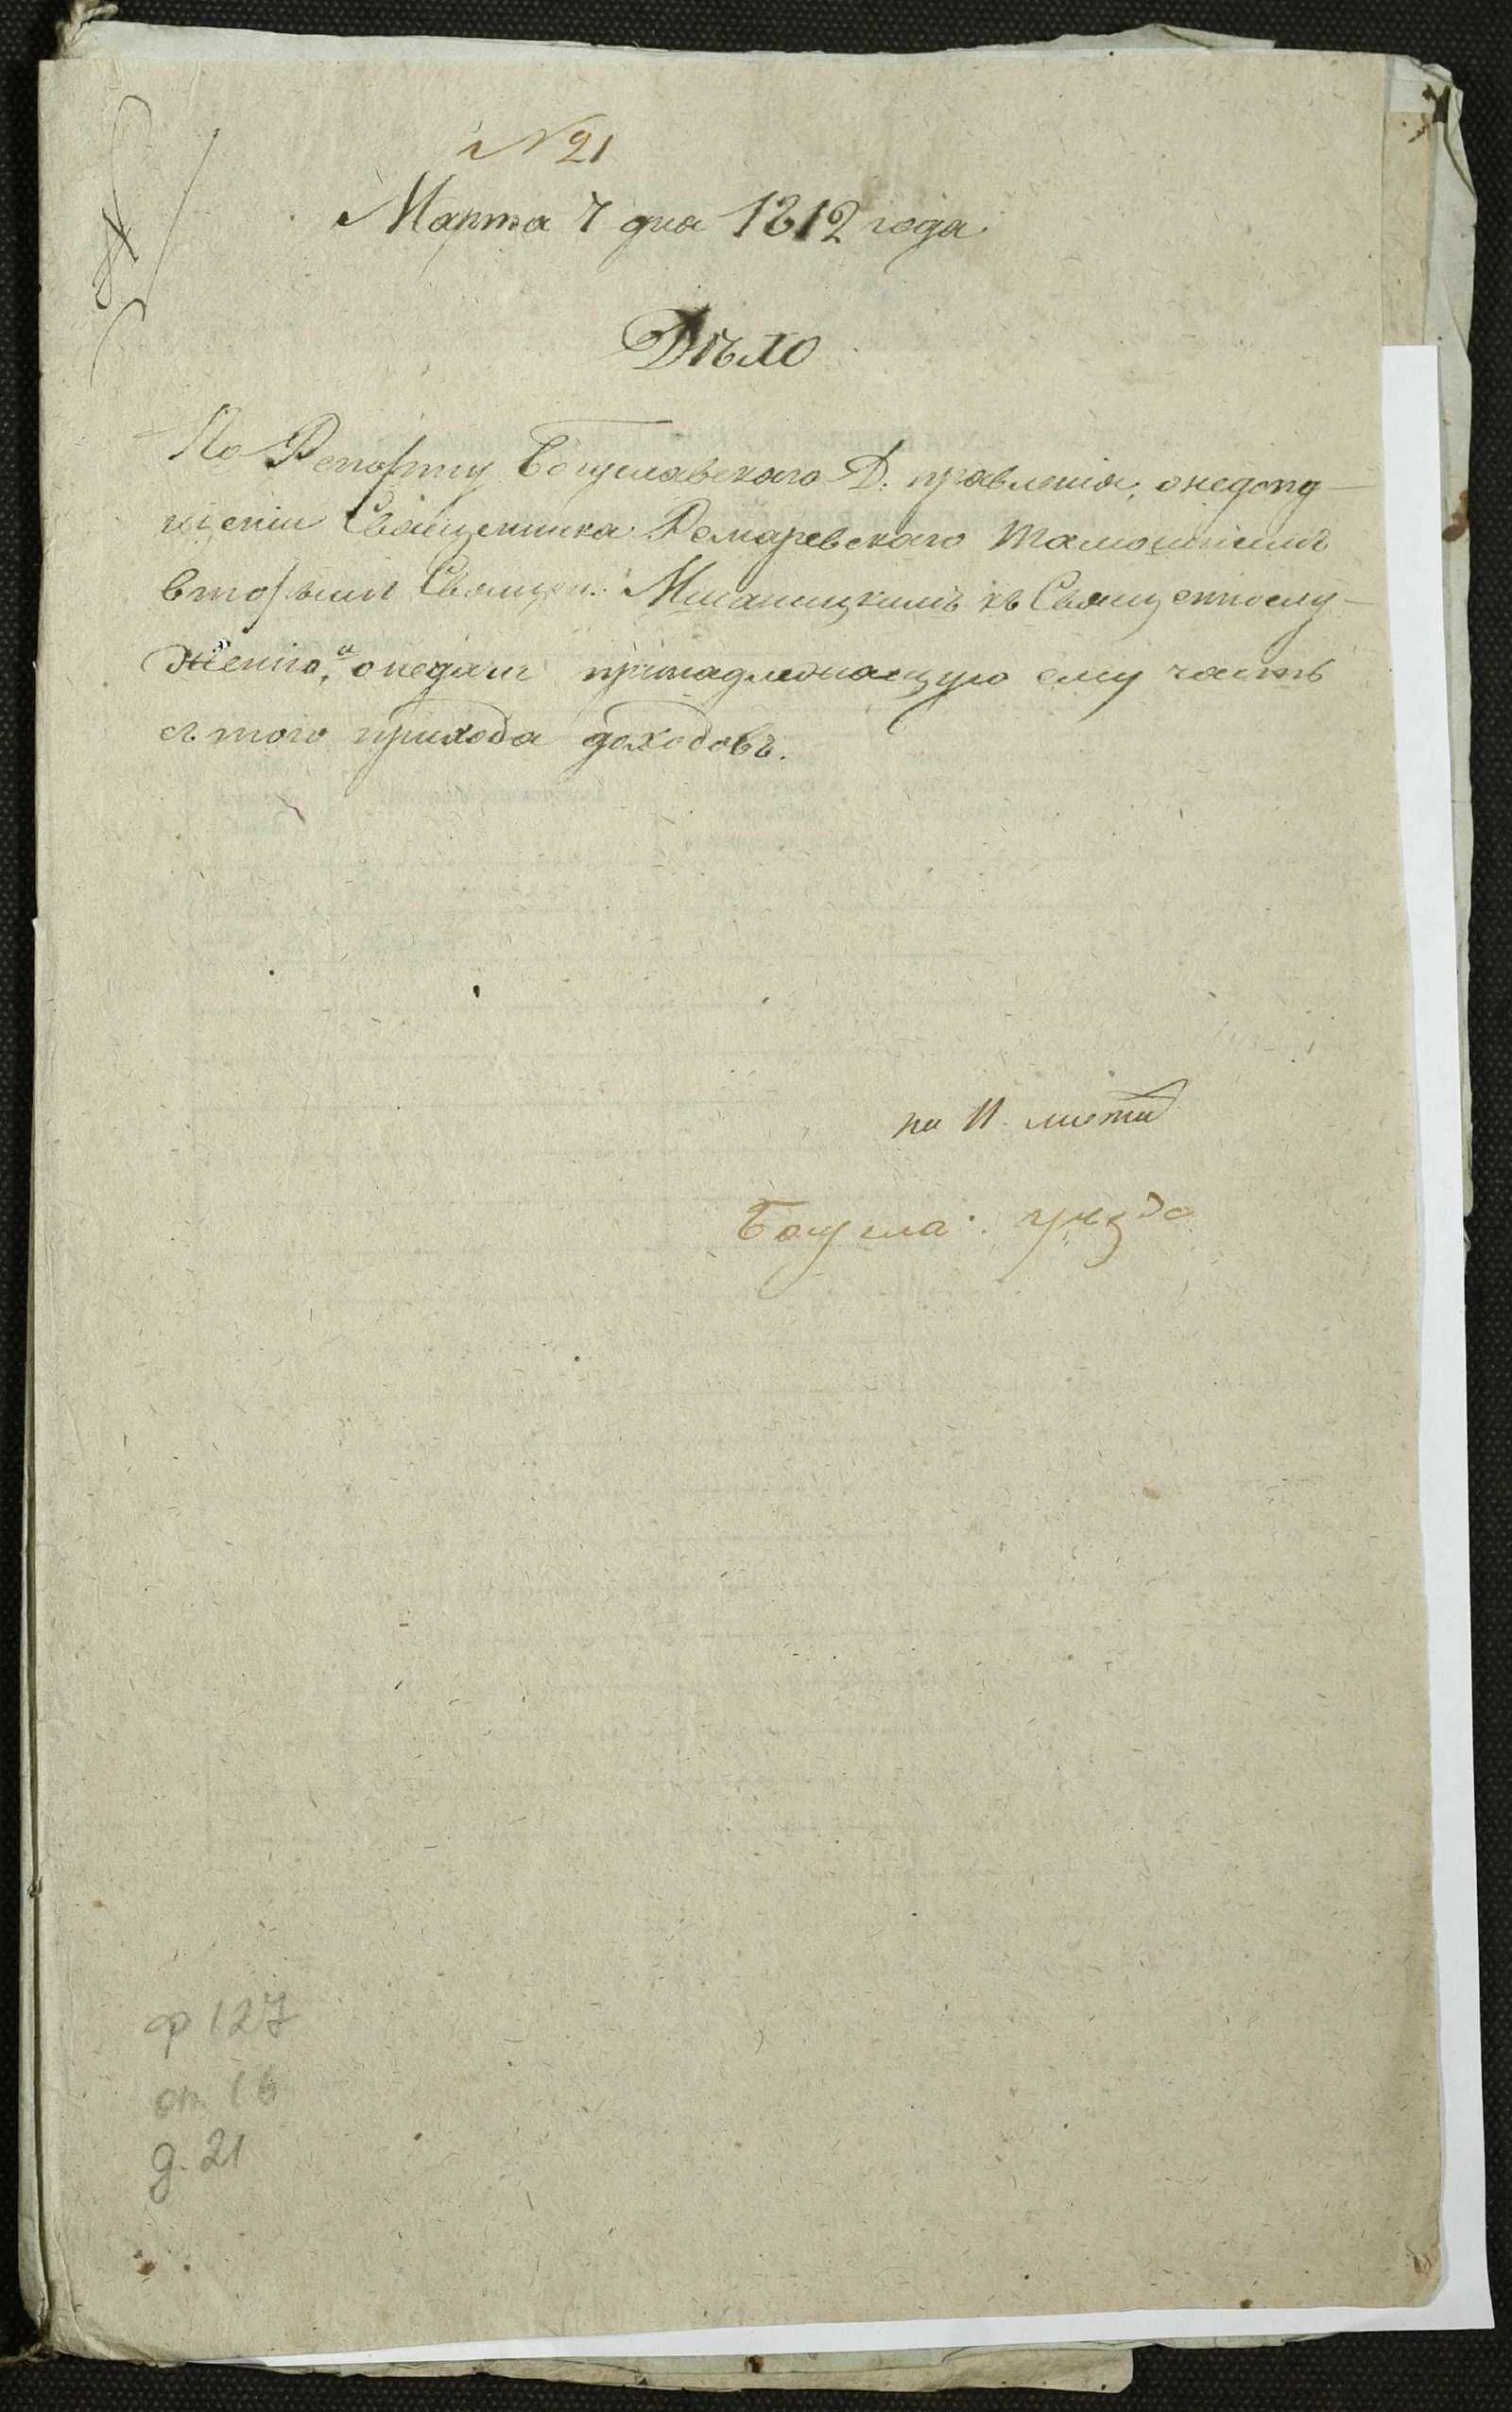 N 21
Марта 7 дня 1812 года
Дѣло
По Репорту Богуславского Д: правленія, онедопу-
щеніи Священника Ремаревского тамошнимъ
вторымъ Священ: къ Священнослу-
женію, и онедачи принадлежащую ему часть
съ того прихода доходовъ.
на 11 листа
Богусла: уезда
ф 127
оп. 16
д. 21